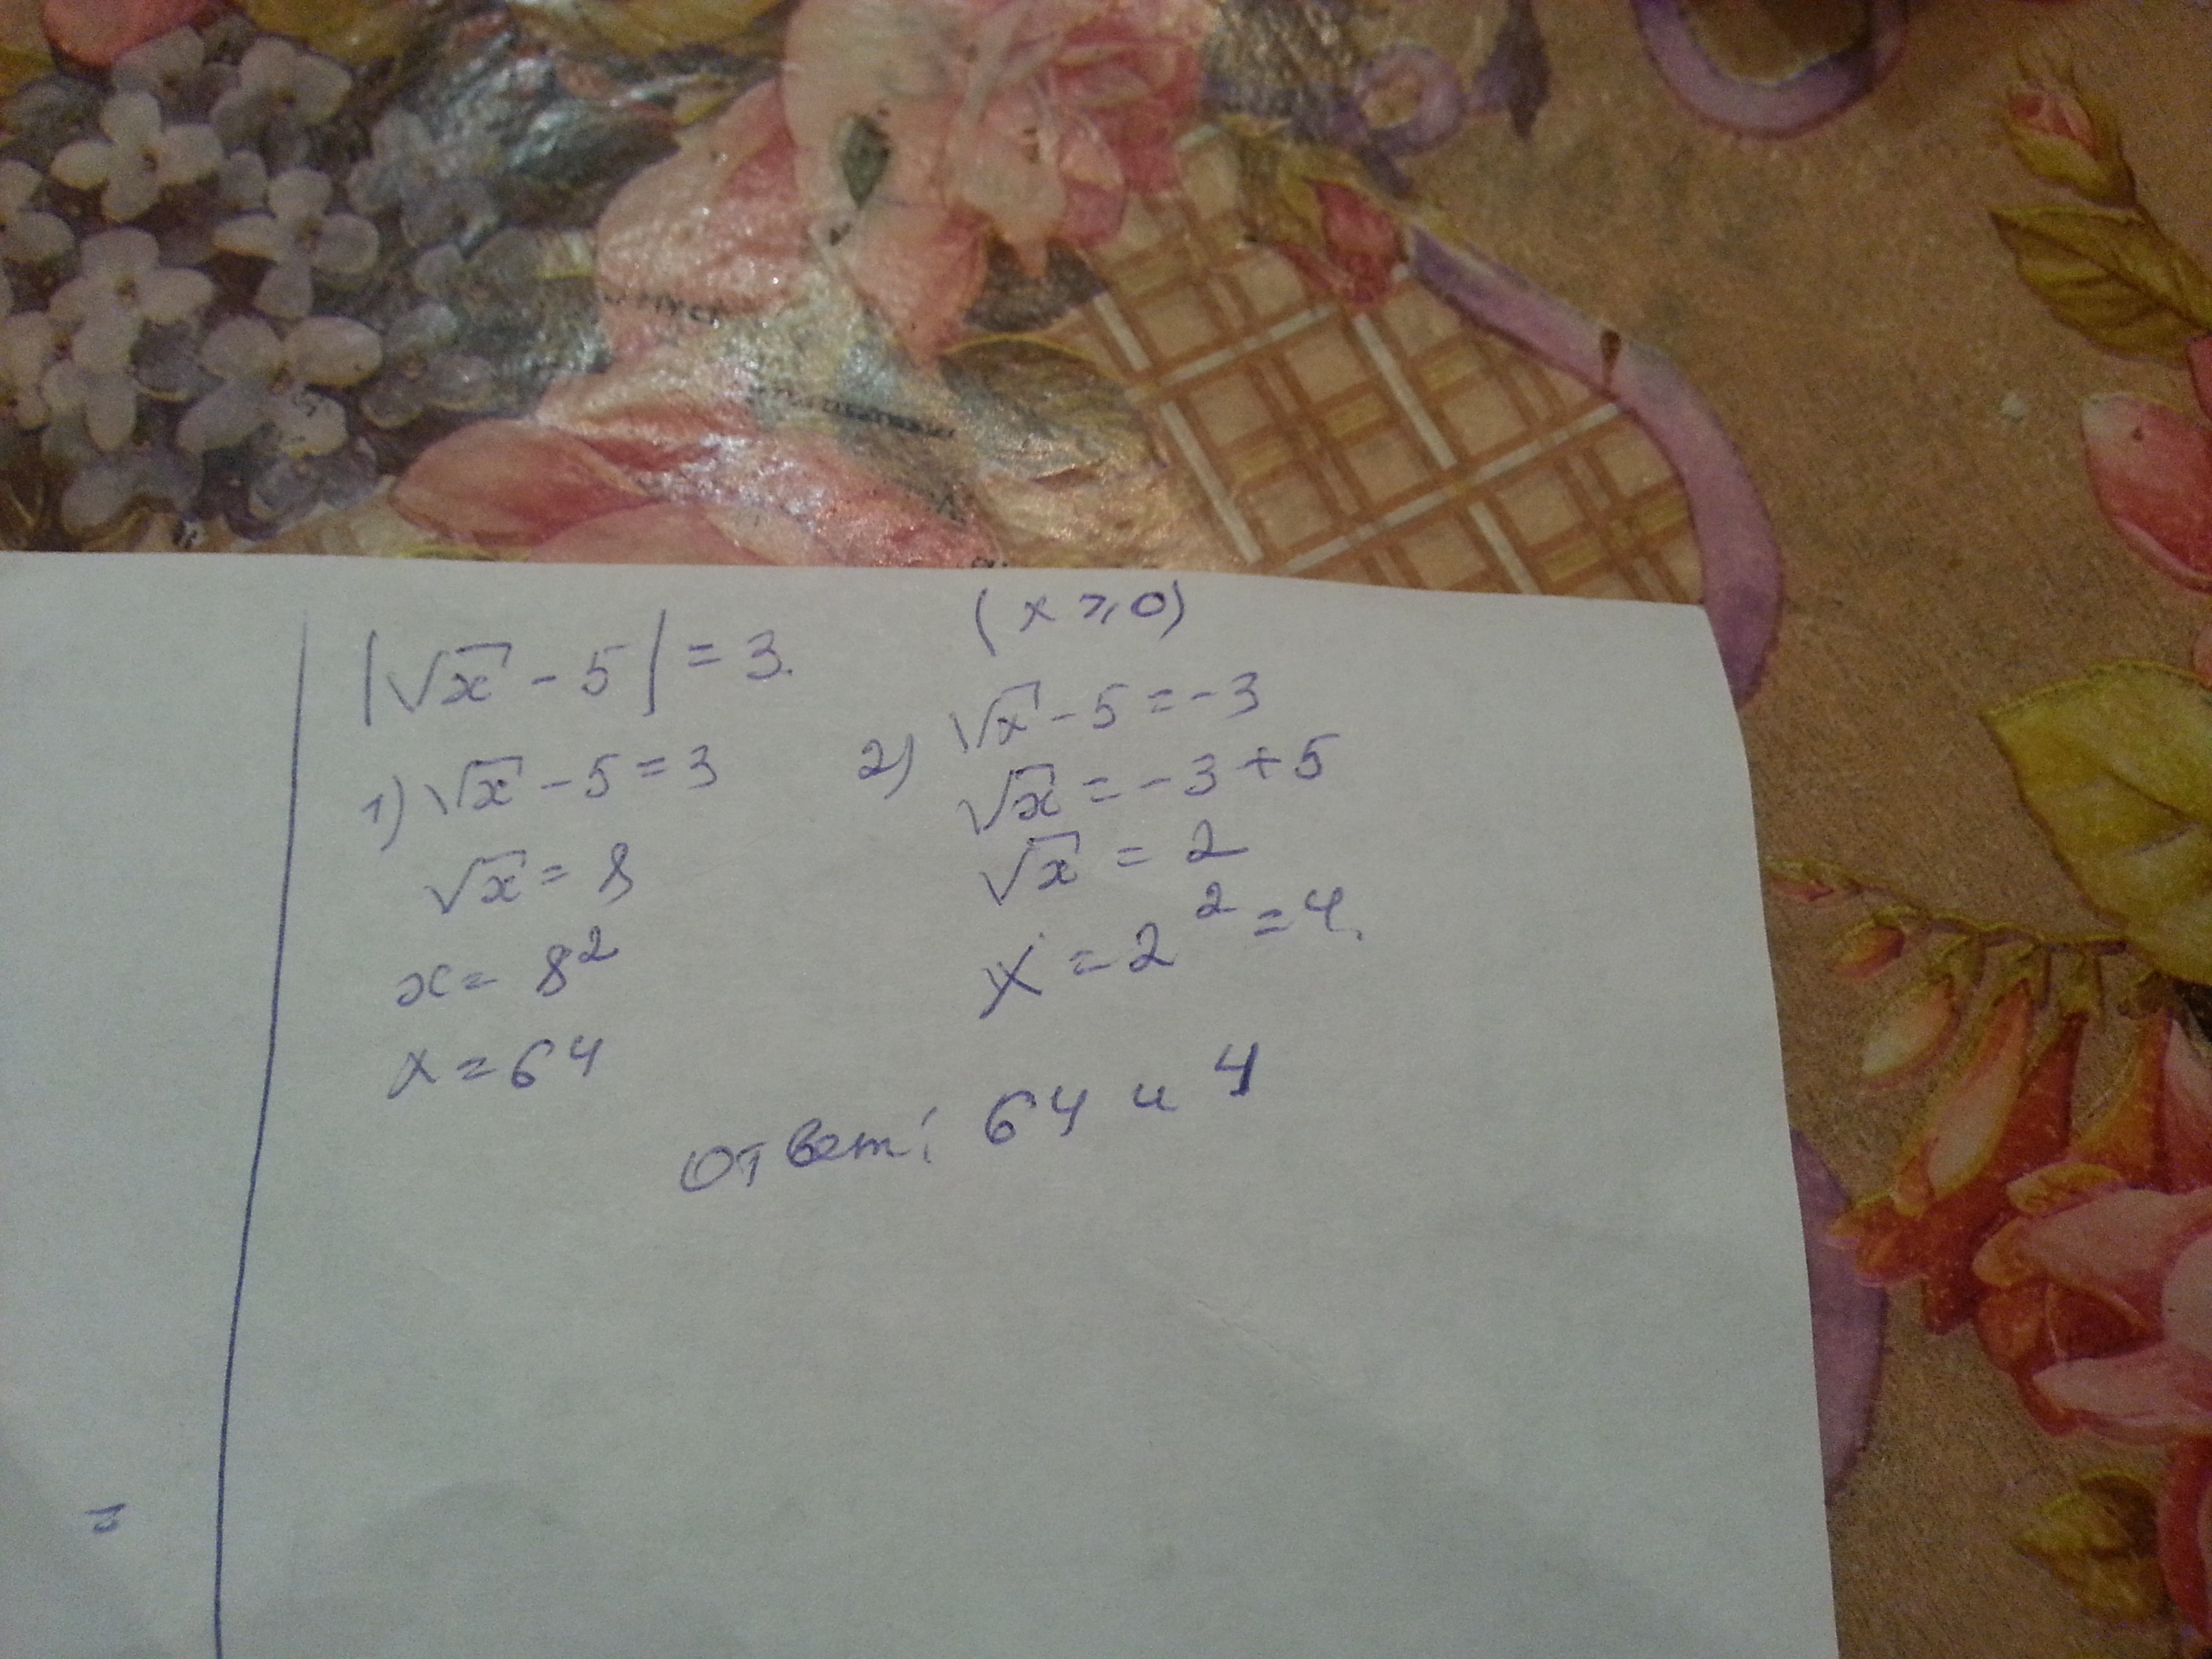 |√x - 5| = 3.
(x ⩾ 0)
1) √x - 5 = 3
√x = 8
x = 8²
x = 64
2) √x - 5 = -3
√x = -3 + 5
√x = 2
x = 2² = 4.
Ответ: 64 и 4
=